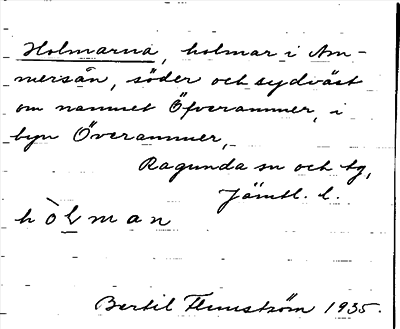 Holmarna, holmar i Am-
mersån, söder och sydväst
om namnet Öfverammer, i
byn Överammer,
Ragunda sn och tg,
Jämtl. l.
hòlman
Bertil Flemström 1935.